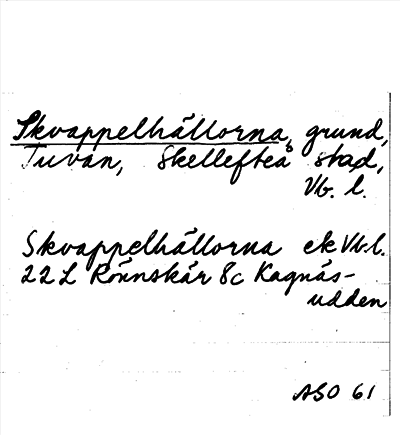 Skvappelhällorna, grund,
Tuvan, Skellefteå stad,
Vb. l.
Skvappelhällorna ek Vb. l.
22 L Rönnskär 8c Kagnäs-
udden
ASO 61